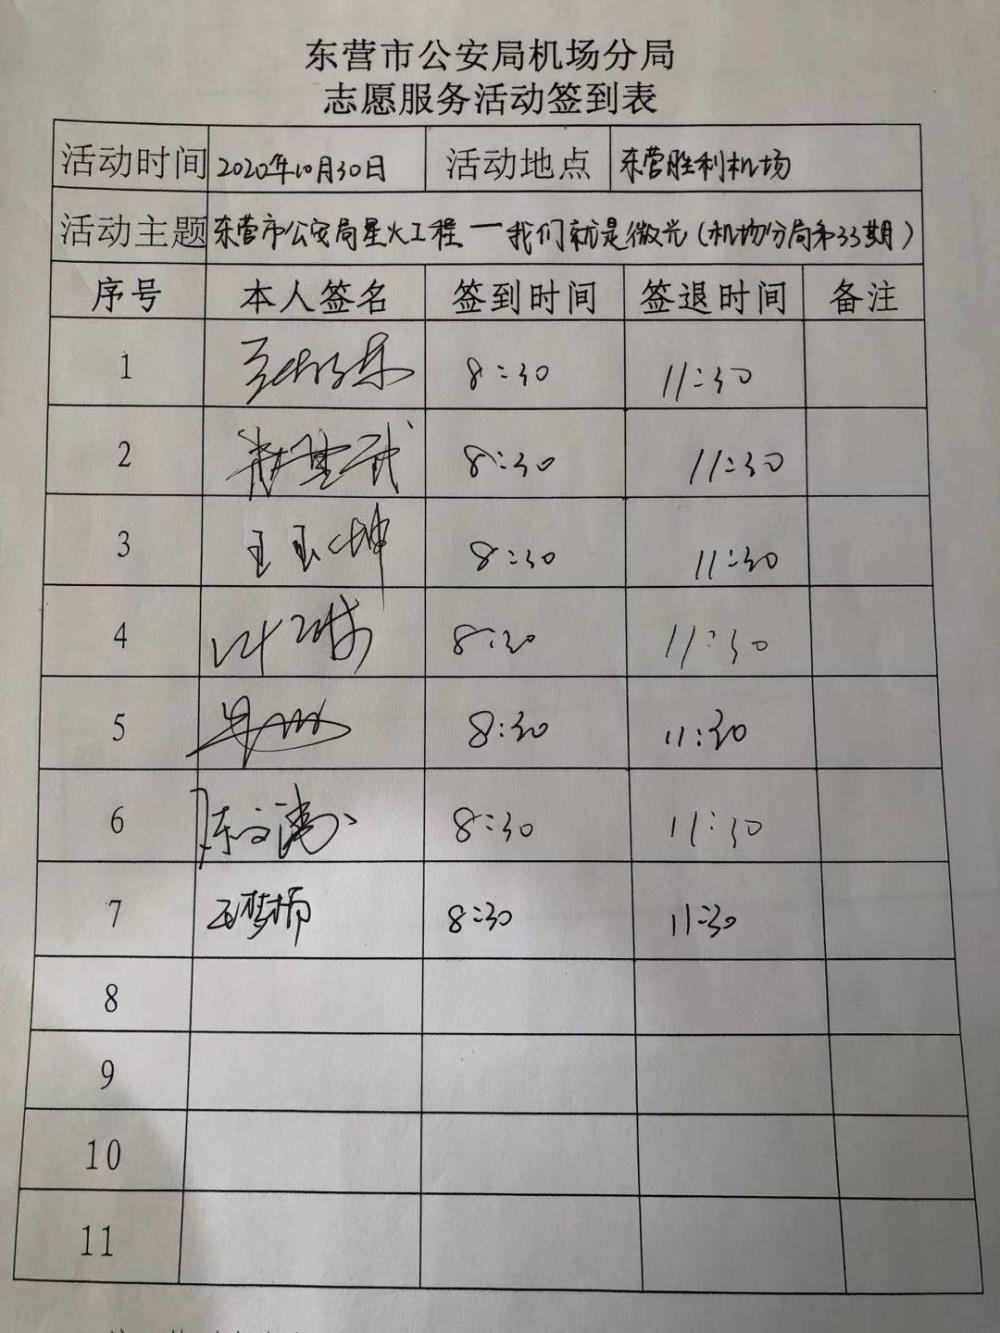 东营市公安局机场分局
志愿服务活动签到表
活动时间 2020年10月30日 活动地点 东营胜利机场
活动主题 东营市公安局星火工程一我们就是微光(机场分局第33期)
序号 本人签名 签到时间 签退时间 备注
1 8:30 11:30
2 8:30 11:30
3 王玉坤 8:30 11:30
4 8:30 11:30
5 8:30 11:30
6 陈文涛 8:30 11:30
7 王梦楠 8:30 11:30
8
9
10
11